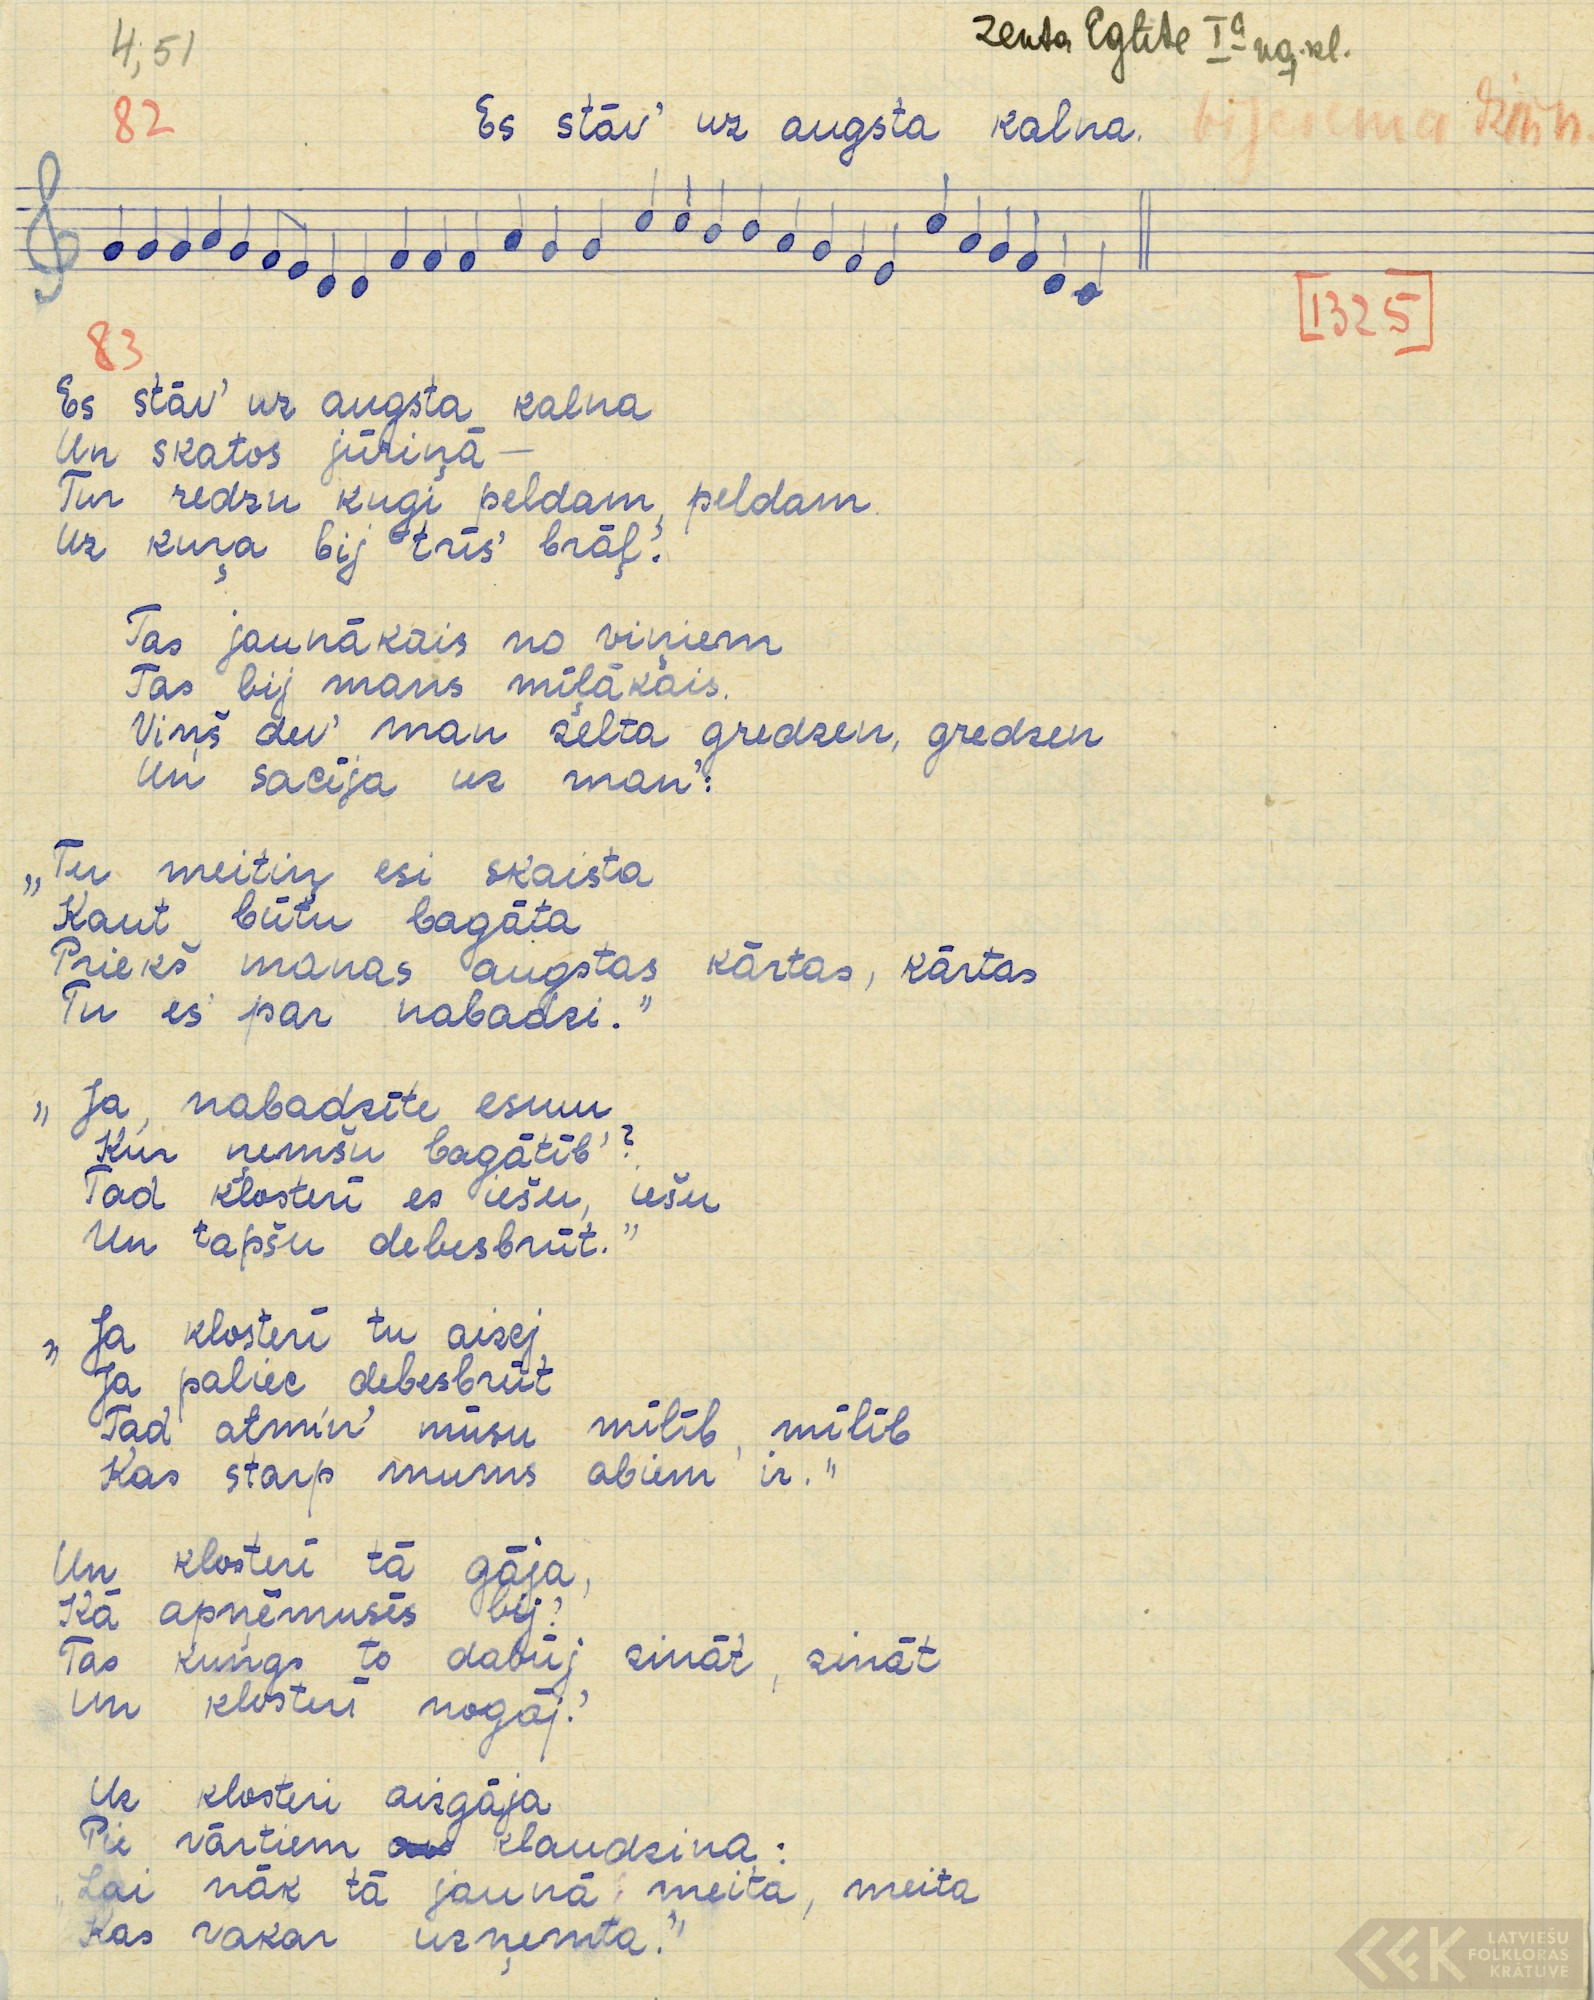 4,51
Zenta Eglīte I a kl.
82
Es stāv' uz augsta kalna.
[1325]
83
Es stāv' uz augsta kalna
Un skatos jūriņā —
Tur redzu kugi peldam, peldam
Uz kuŗa bij trīs' brāļ'.
Tas jaunākais no viņiem
Tas bij mans mīļākais.
Viņš dev' man zelta gredzen, gredzen
Un sacīja uz man':
„Tu meitiņ esi skaista
Kaut būtu bagāta
Priekš manas augstas kārtas, kārtas
Tu es' par nabadzi."
„Ja, nabadzīte esmu
Kur ņemšu bagātīb'?
Tad klosterī es iešu, iešu
Un tapšu debesbrūt."
„Ja klosterī tu aizej
Ja paliec debesbrūt
Tad atmin' mūsu mīlīb, mīlīb
Kas starp mums abiem ir."
Un klosterī tā gāja,
Kā apņēmusēs bij'
Tas kungs to dabūj zināt, zināt
Un klosterī nogāj.'
Uz klosteri aizgāja
Pie vārtiem klaudzina:
Lai nāk tā jaunā meita, meita
Kas vakar uzņemta."
LATVIEŠU
FOLKLORAS
KRĀTUVE